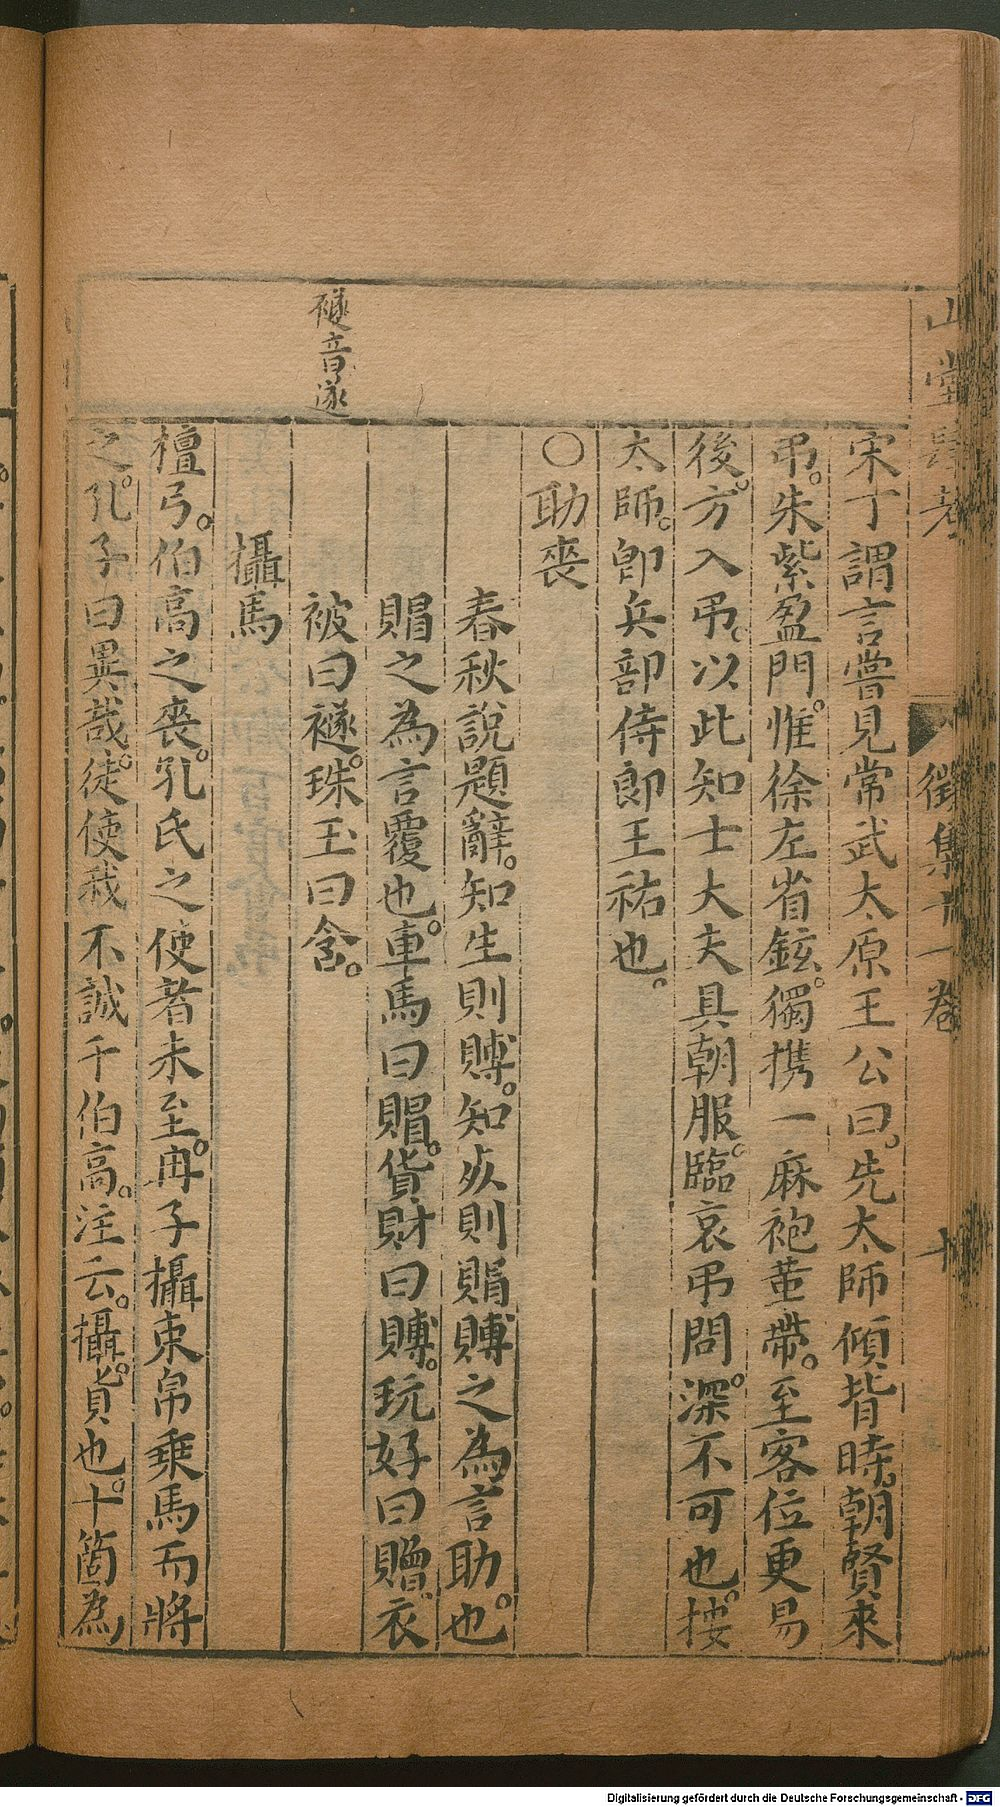 山堂肆考
徵集十一卷
十
宋丁謂言嘗見常武太原王公曰。先太師傾背時。朝賢來
弔。朱紫盈門。惟徐左省鉉。獨携一麻袍䓶帶。至客位更易
後。方入弔。以此知士大夫具朝服。臨哀弔問。深不可也。按
太師。卽兵部侍郎王祐也。
○助喪
春秋說題辭。知生則賻。知死則賵賻之為言助也。
賵之為言覆也。車馬曰賵。貨財曰賻。玩好曰贈。衣
被曰襚。珠玉曰含。
襚音遂
攝馬
檀弓。伯高之喪。孔氏之使者未至。冉子攝束帛乗馬而將
之。孔子曰異哉。徒使我不誠于伯高。注云。攝。貣也。十箇為
Digitalisierung gefördert durch die Deutsche Forschungsgemeinschaft - DFG